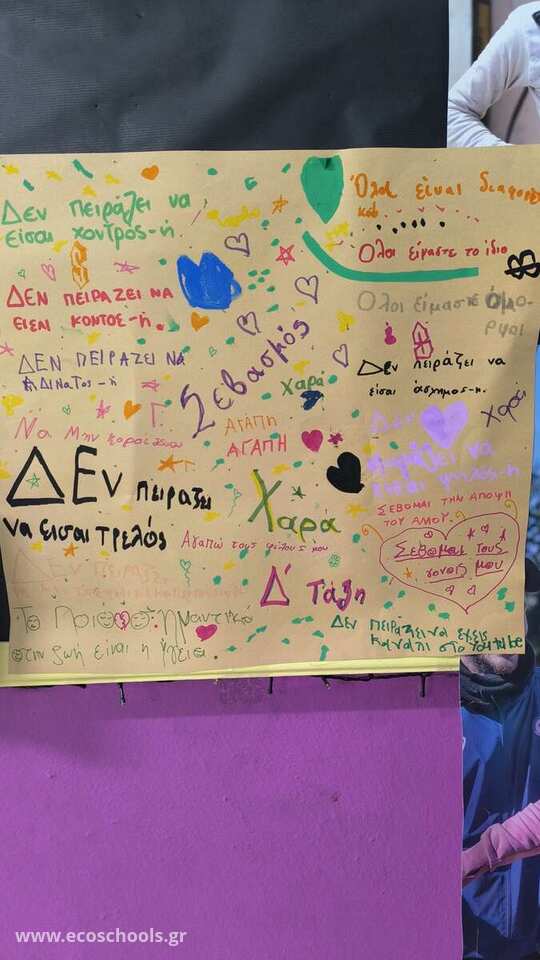 Δεν πειράζει να
είσαι χοντρός-ή.
ΔΕΝ ΠΕΙΡΑΖΕΙ ΝΑ
ΕΙΣΑΙ ΚΟΝΤΟΣ-Ή.
ΔΕΝ ΠΕΙΡΑΖΕΙ ΝΑ
Να Μην κοροϊδεύω
ΔΕν πειραζει
να εισαι τρελός
Δεν πειράζει
Το Ποιο σημαντικό
στην ζωή είναι η υγεία.
Σεβασμός
Χαρά
ΑΓΑΠΗ
ΑΓΑΠΗ
Χαρά
Αγαπώ τους φίλους μου
Δ' Τάξη
Όλοι είναι διαφορε
Όλοι είμαστε το ίδιο
Όλοι είμαστε Όμο-
ρφοι
Δεν πειράζει να
είσαι άσχημος-η.
Χαρά
Δεν
πειράζει να
είσαι ψηλός-ή
ΣΕΒΟΜΑΙ ΤΗΝ ΑΠΟΨΗ
ΤΟΥ ΑΛΛΟΥ.
Σέβομαι τους
γονείς μου
Δεν πειράζει να έχεις
κανάλι στο You tube
www.ecoschools.gr